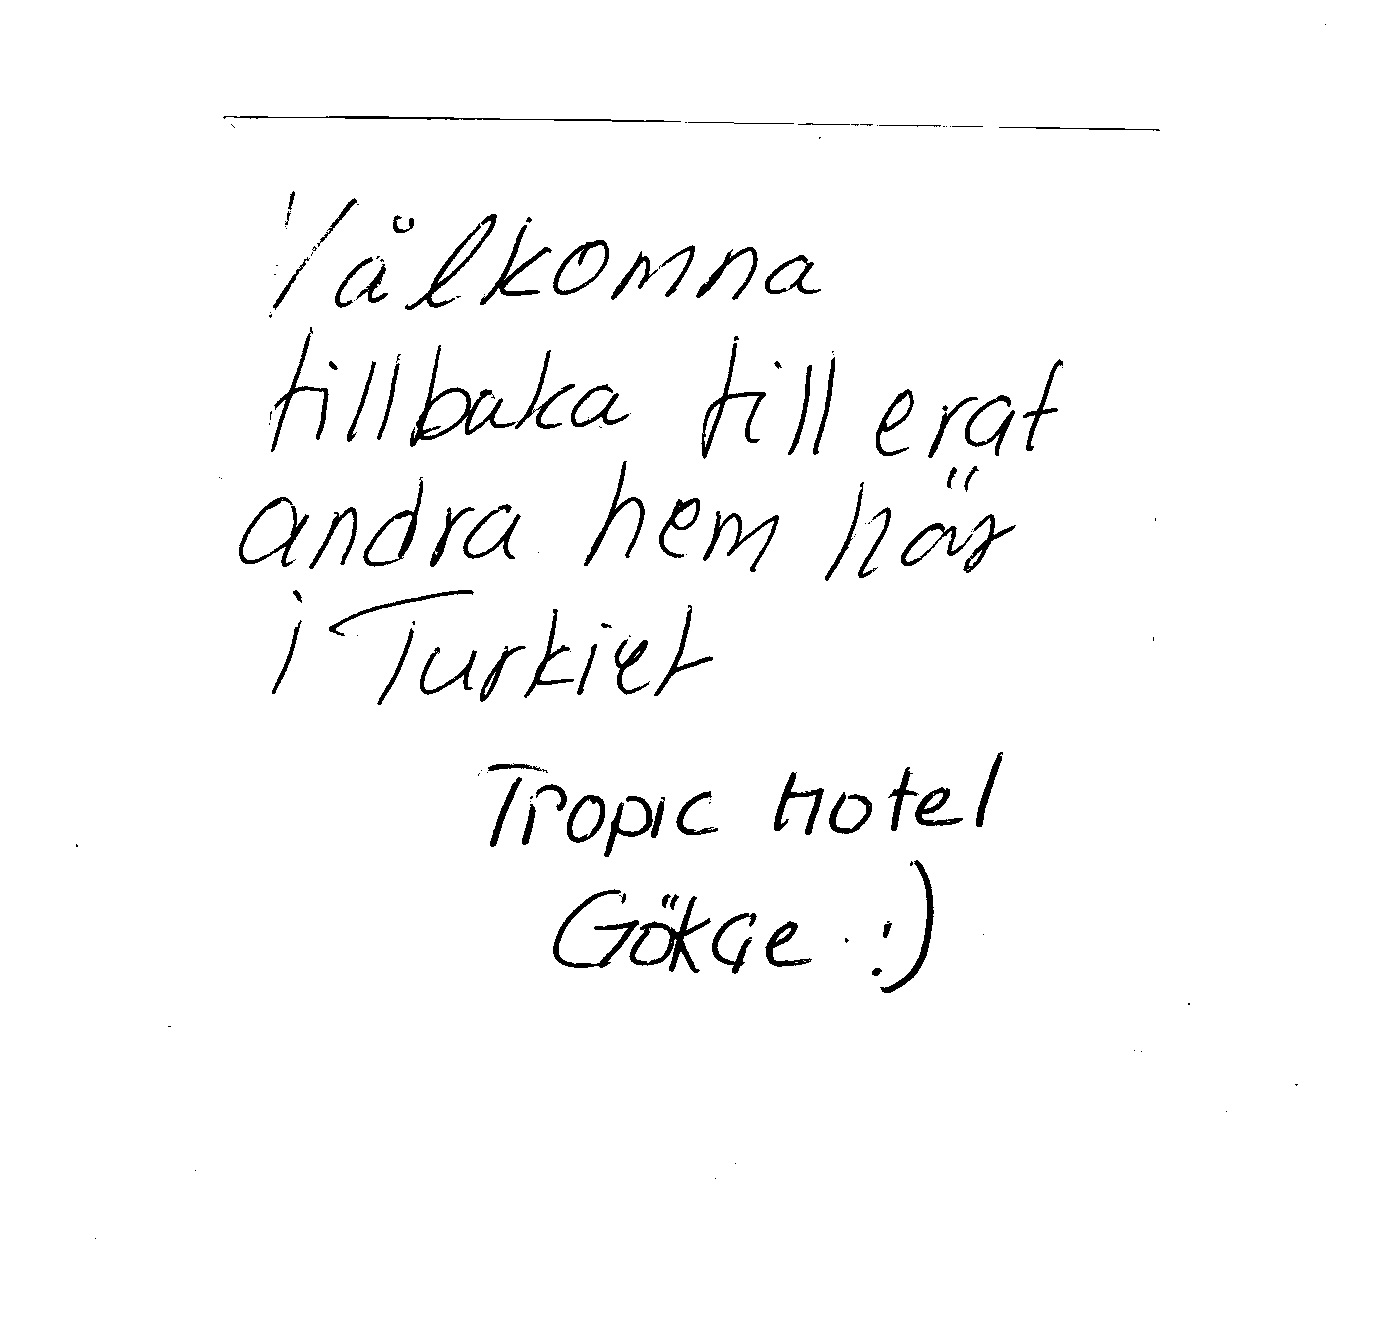 Välkomna
tillbaka till erat
andra hem här
i Turkiet
Tropic Hotel
Gökçe :)